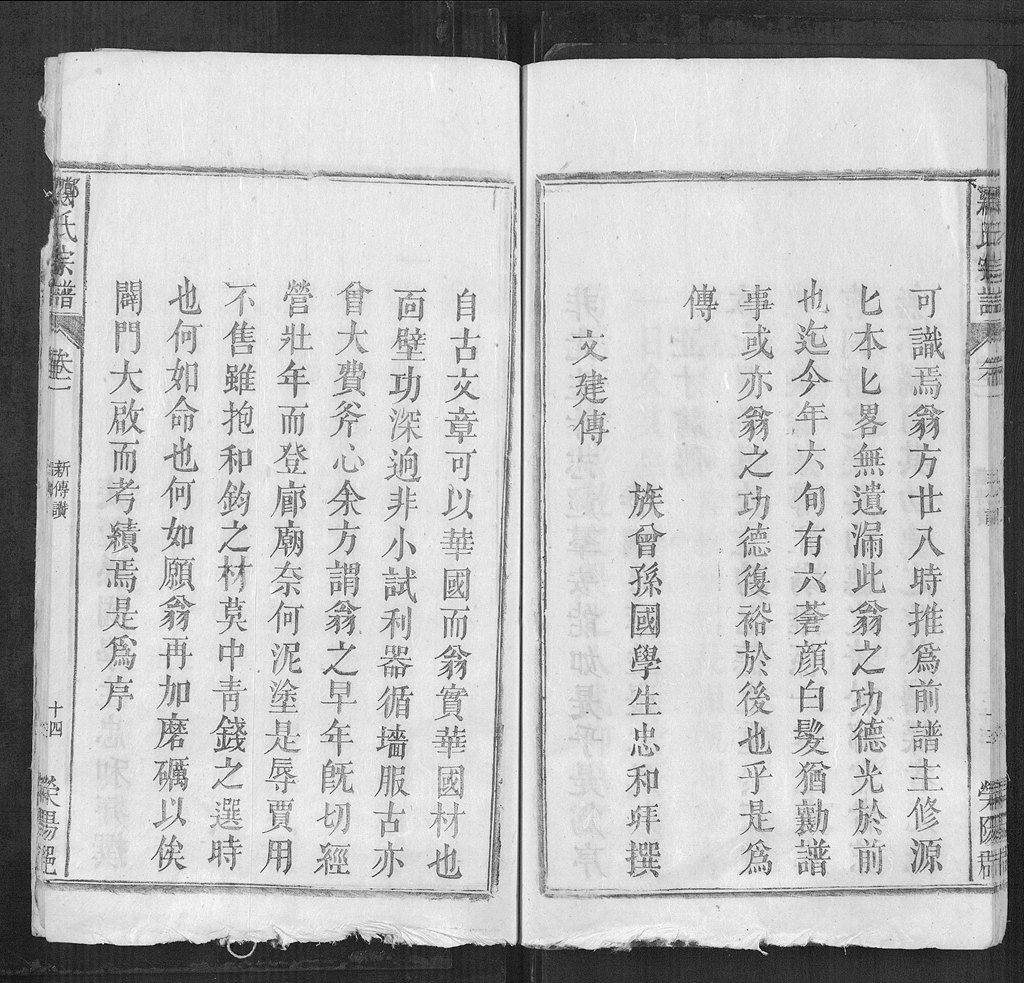 可識焉翁方廿八時推爲前譜主修源
匕本匕畧無遺漏此翁之功德光於前
也迄今年六旬有六蒼顔白髮猶勤譜
事或亦翁之功德復裕於後也乎是爲
傳
文建傳
族曾孫國學生忠和拜撰
自古文章可以華國而翁實華國材也
面壁功深逈非小試利器循墻服古亦
曾大費斧心余方謂翁之早年旣切經
營壯年而登廊廟奈何泥塗是辱賈用
不售雖抱和鈞之材莫中靑錢之選時
也何如命也何如願翁再加磨礪以俟
闢門大啟而考績焉是爲序
鄭氏宗譜
卷一
新傳讚
十四
滎陽